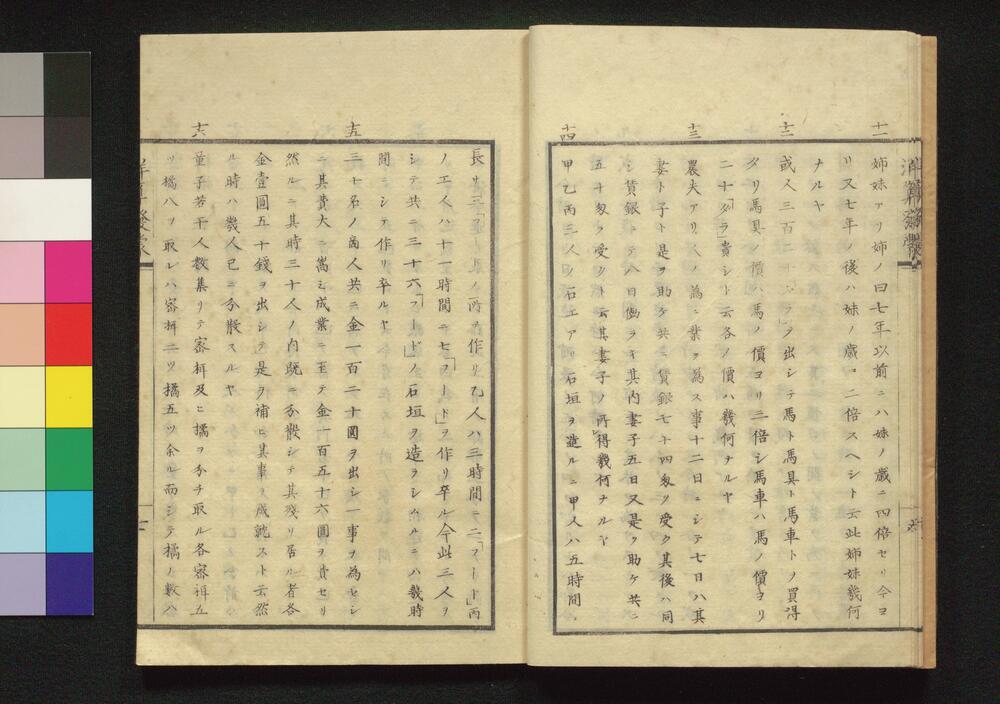 十一
姉妹アリ姉ノ曰七年以前ニハ妹ノ歳ニ四倍セリ今ヨ
リ又七年ノ後ハ妹ノ歳ニ二倍スヘシト云此姉妹幾何
ナルヤ
十二
或人三百二十ヲ出シテ馬ト馬具ト馬車トノ買得
タリ馬具ノ價ハ馬ノ價ヨリ二倍シ馬車ハ馬ノ價ヨリ
二十「ダラ」貴シト云各ノ價ハ幾何ナルヤ
十三
農夫アリ人ノ為ニ業ヲ為ス事十二日ニシテ七日ハ其
妻ト子ト是ヲ助ケ共ニ賃銀七十四匁ヲ受ク其後ハ同
シ賃銀ニテ八日働ラキ其内妻子五日又是ヲ助ケ共ニ
五十匁ヲ受クト云其妻子ノ所得幾何ナルヤ
十四
甲乙丙三人ノ石工アリ石垣ヲ造ルニ甲人ハ五時間
長サ三「ノ所ヲ作リ乙人ハ三時間ニ二「フート」丙
ノ工人ハ十一時間ニ七「フート」ヲ作リ卒ル今此三人ヲ
シテ共ニ三十六「フート」ノ石垣ヲ造ラシムルニハ幾時
間ニシテ作リ卒ルヤ
十五
三十名ノ商人共ニ金一百二十圓ヲ出シ一事ヲ為セシ
ニ其費大ニ嵩ミ成業ニ至テ金一百五十六圓ヲ費セリ
然ルニ其時三十人ノ内既ニ分散シテ其殘リ居ル者各
金壹圓五十錢ヲ出シテ是ヲ補ヒ其事ヲ成就スト云然
ル時ハ幾人已ニ分散スルヤ
十六
童子若干人數集リテ審柑及ヒ橘ヲ分チ取ル各審柑五
ツ橘八ツ取レハ審柑二ツ橘五ツ余ル而シテ橘ノ數ハ